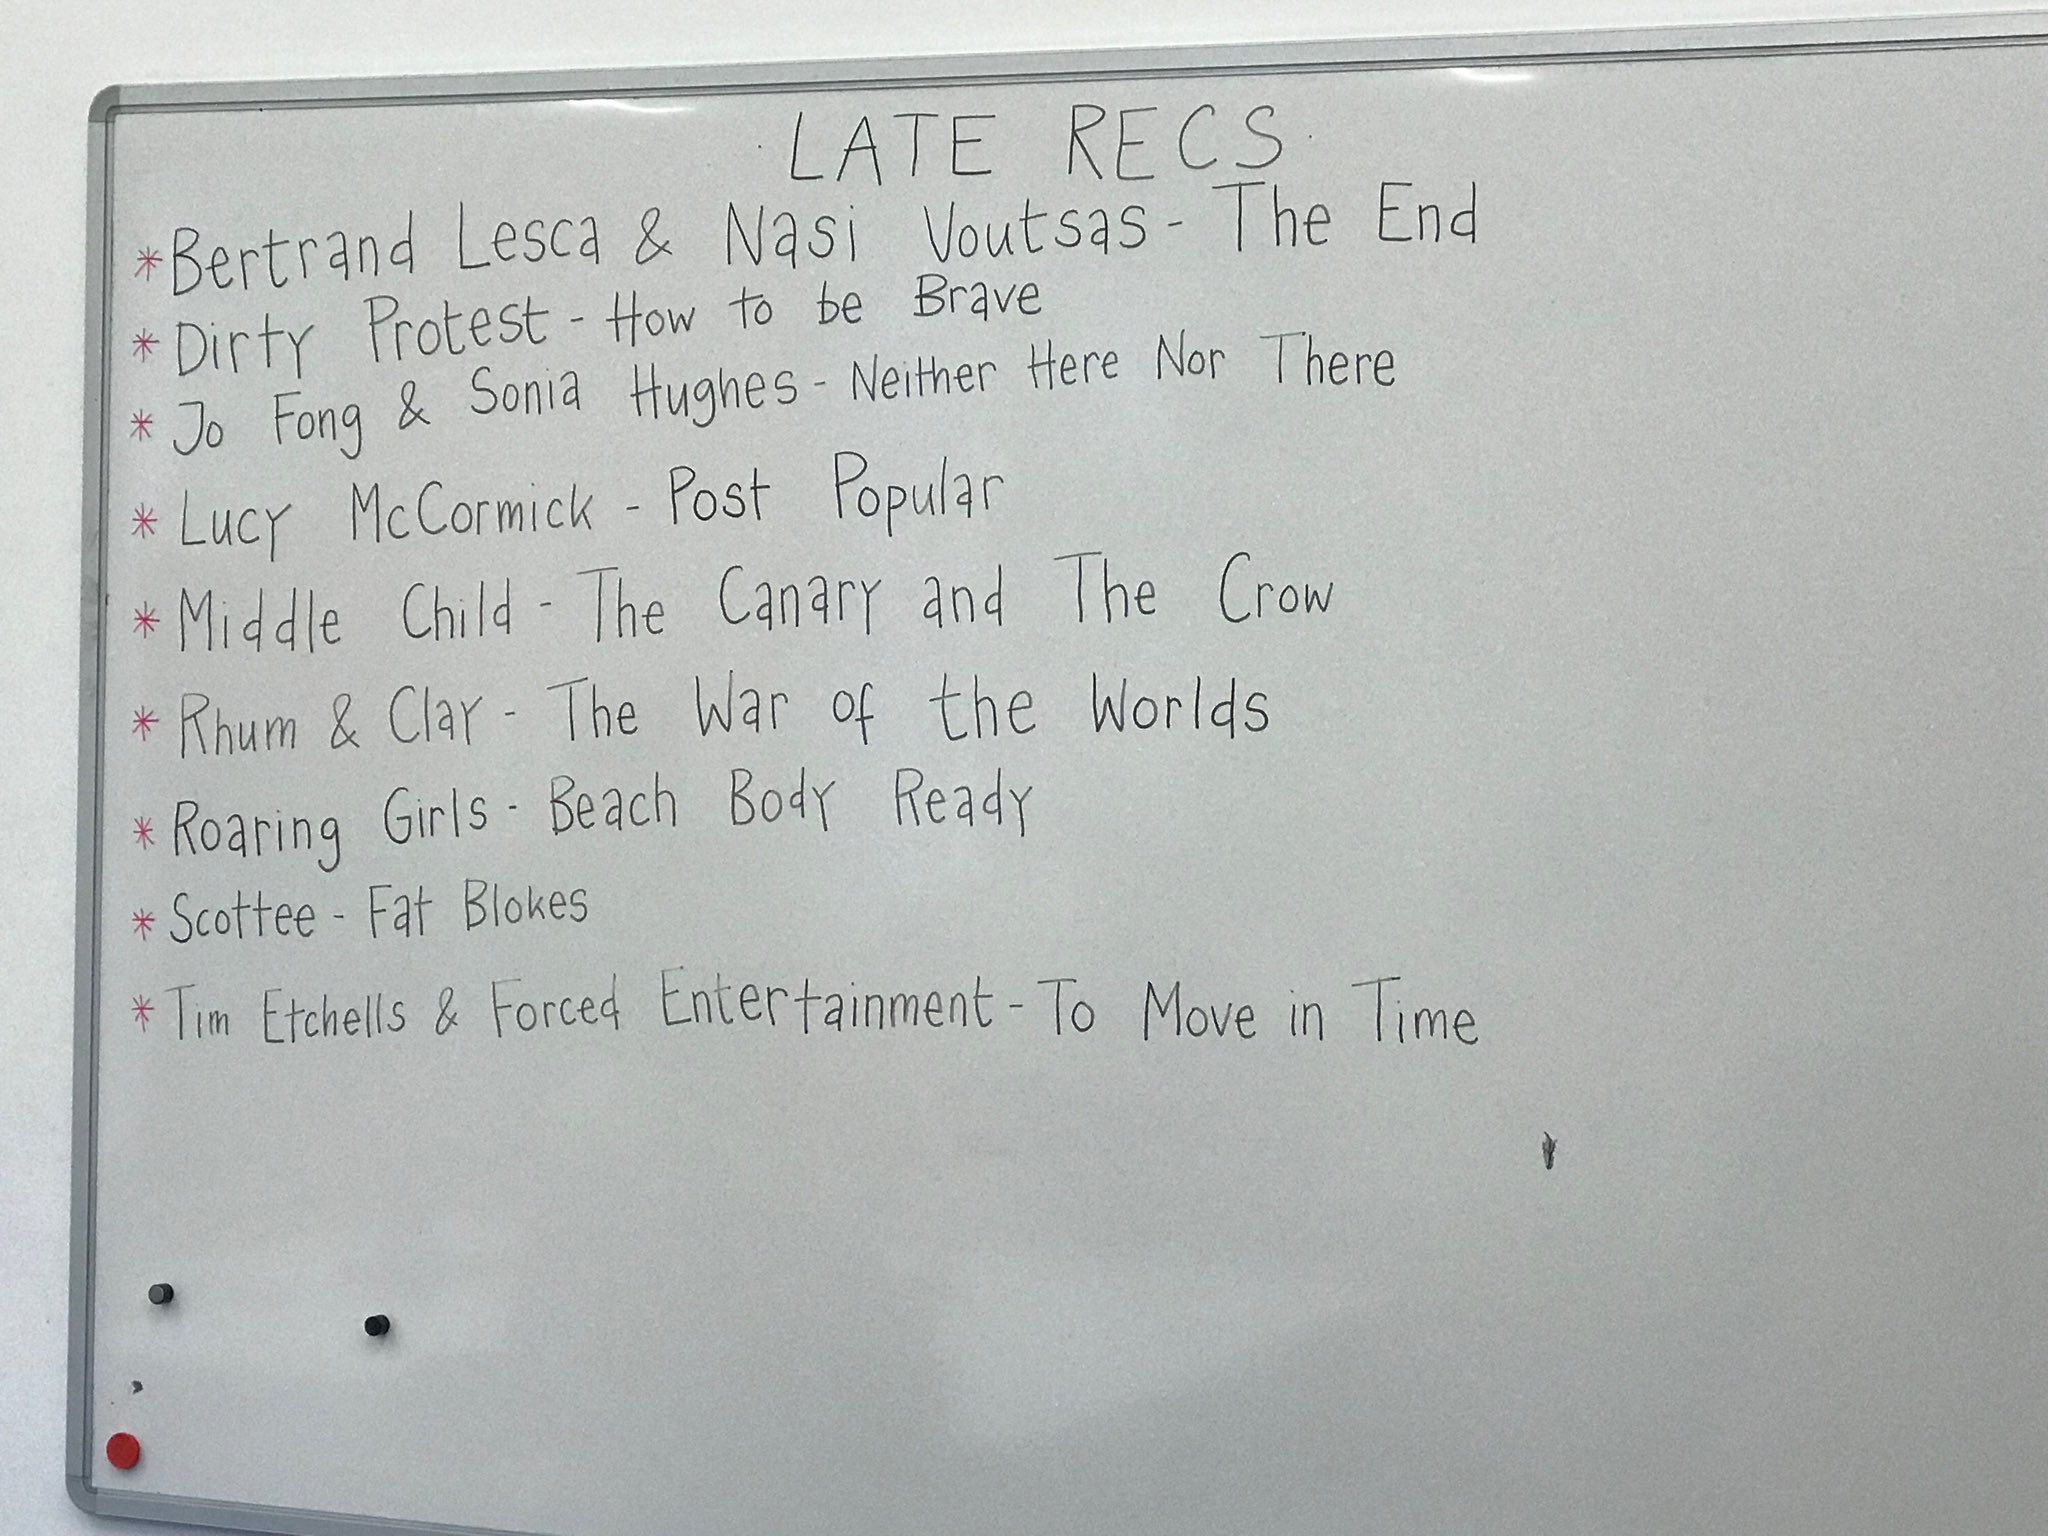 LATE RECS
* Bertrand Lesca & Nasi Voutsas - The End
* Dirty Protest - How to be Brave
* Jo Fong & Sonia Hughes - Neither Here Nor There
* Lucy McCormick - Post Popular
* Middle Child - The Canary and The Crow
* Rhum & Clay - The War of the Worlds
* Roaring Girls - Beach Body Ready
* Scottee - Fat Blokes
* Tim Etchells & Forced Entertainment - To Move in Time